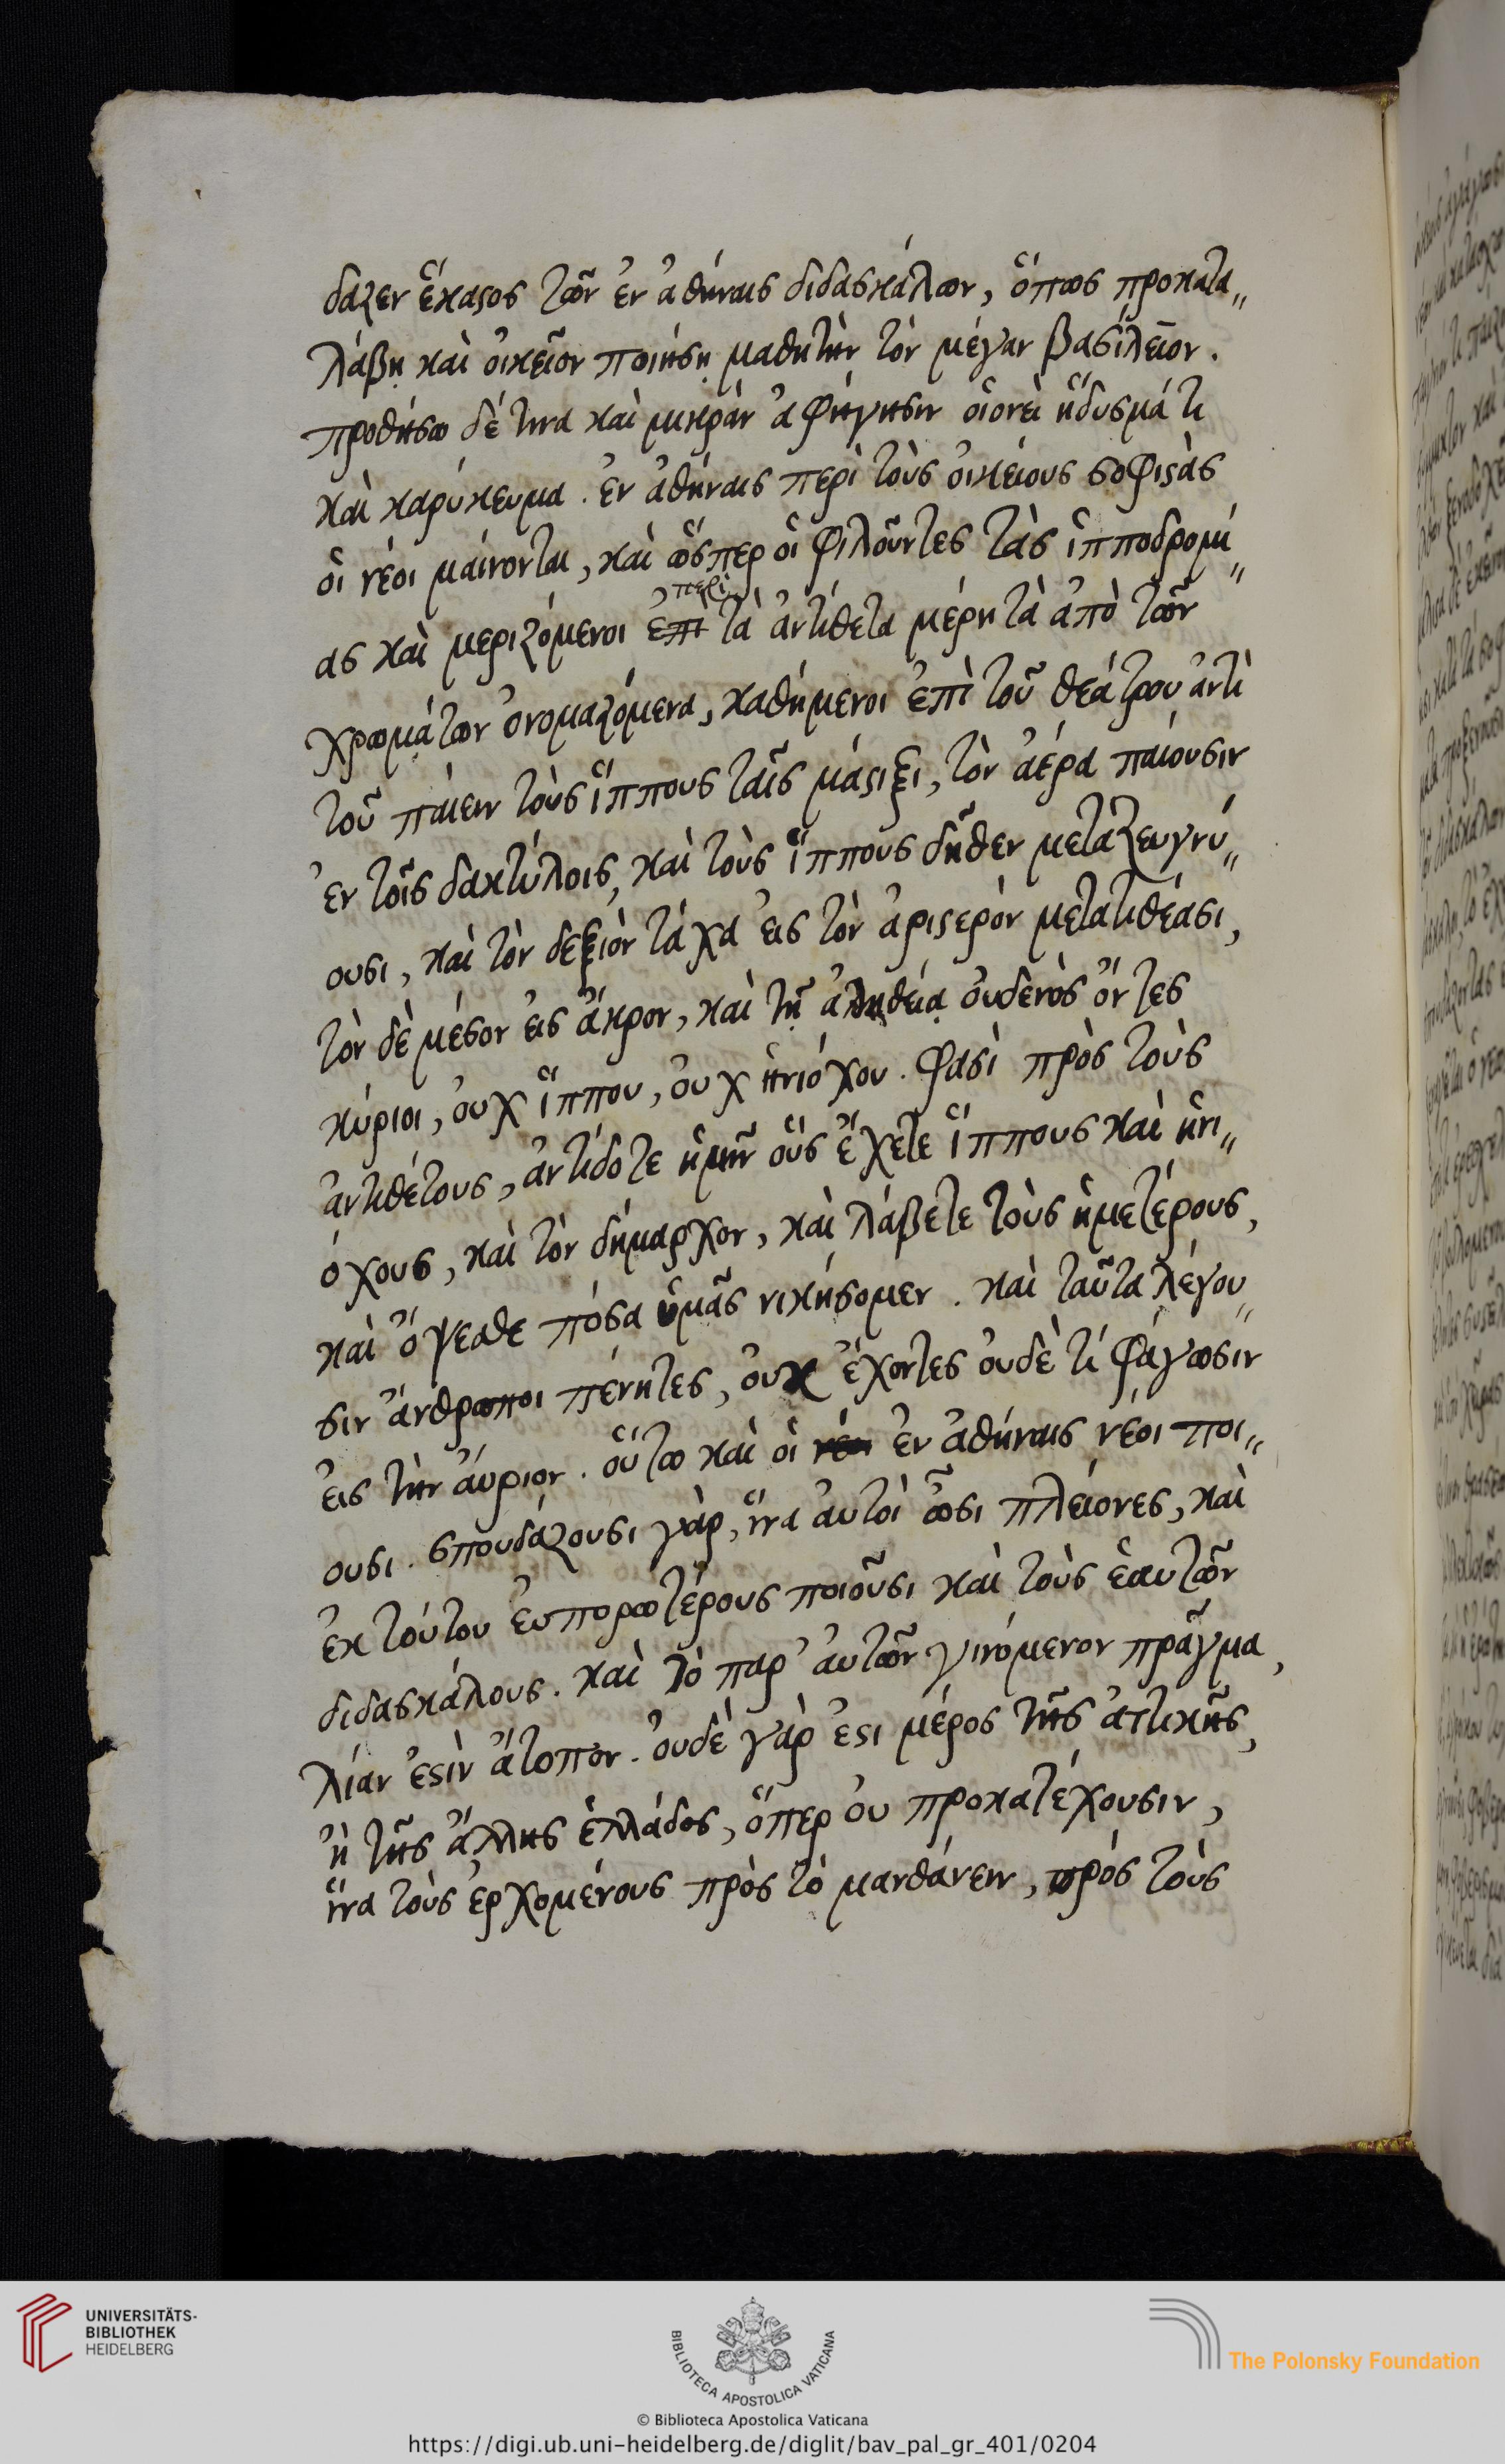 δαζεν ἕκαστος τῶν ἐν ἀθήναις διδασκάλων, ὅπως προκατα„
λάβῃ καὶ οἰκεῖον ποιήσῃ μαθητὴν τὸν μέγαν βασίλειον.
προθήσω δέ τινα καὶ μικρὰν ἀφήγησιν οἱονεὶ ἥδυσμά τι
καὶ καρύκευμα. ἐν ἀθήναις περὶ τοὺς οἰκείους σοφιστὰς
οἱ νέοι μαίνονται, καὶ ὥσπερ οἱ φιλοῦντες τὰς ἱπποδρομί„
περὶ
ας καὶ μεριζόμενοι ἐπὶ τὰ ἀντίθετα μέρη τὰ ἀπὸ τῶν
χρωμάτων ὀνομαζόμενα, καθήμενοι ἐπὶ τοῦ θεάτρου ἀντὶ
τοῦ παίειν τοὺς ἵππους ταῖς μάστιξι, τὸν ἀέρα παίουσιν
ἐν τοῖς δακτύλοις, καὶ τοὺς ἵππους δῆθεν μεταζευγνύ„
ουσι, καὶ τὸν δεξιὸν τάχα εἰς τὸν ἀριστερὸν μετατιθέασι,
τὸν δὲ μέσον εἰς ἄκρον, καὶ τῇ ἀληθείᾳ οὐδενὸς ὄντες
κύριοι, οὐχ ἵππου, οὐχ ἡνιόχου. φασὶ πρὸς τοὺς
ἀντιθέτους, ἀντίδοτε ἡμῖν οὓς ἔχετε ἵππους καὶ ἡνι„
όχους, καὶ τὸν δήμαρχον, καὶ λάβετε τοὺς ἡμετέρους,
καὶ ὄψεσθε πόσα ὑμᾶς νικήσομεν. καὶ ταῦτα λέγου„
σιν ἄνθρωποι πένητες, οὐκ ἔχοντες οὐδὲ τί φάγωσιν
εἰς τὴν αὔριον. οὕτω καὶ οἱ νέοι ἐν ἀθήναις νέοι ποι„
ουσι. σπουδάζουσι γὰρ, ἵνα αὐτοὶ ὦσι πλείονες, καὶ
ἐκ τούτου εὐπορωτέρους ποιοῦσι καὶ τοὺς ἑαυτῶν
διδασκάλους. καὶ τὸ παρ' αὐτῶν γινόμενον πρᾶγμα,
λίαν ἐστὶν ἄτοπον. οὐδὲ γὰρ ἐστι μέρος τῆς ἀττικῆς,
ἢ τῆς ἄλλης ἑλλάδος, ὅπερ οὐ προκατέχουσιν,
ἵνα τοὺς ἐρχομένους πρὸς τὸ μανθάνειν, πρὸς τοὺς
UNIVERSITÄTS-
BIBLIOTHEK
HEIDELBERG
BIBLIOTECA APOSTOLICA VATICANA
The Polonsky Foundation
© Biblioteca Apostolica Vaticana
https://digi.ub.uni-heidelberg.de/diglit/bav_pal_gr_401/0204